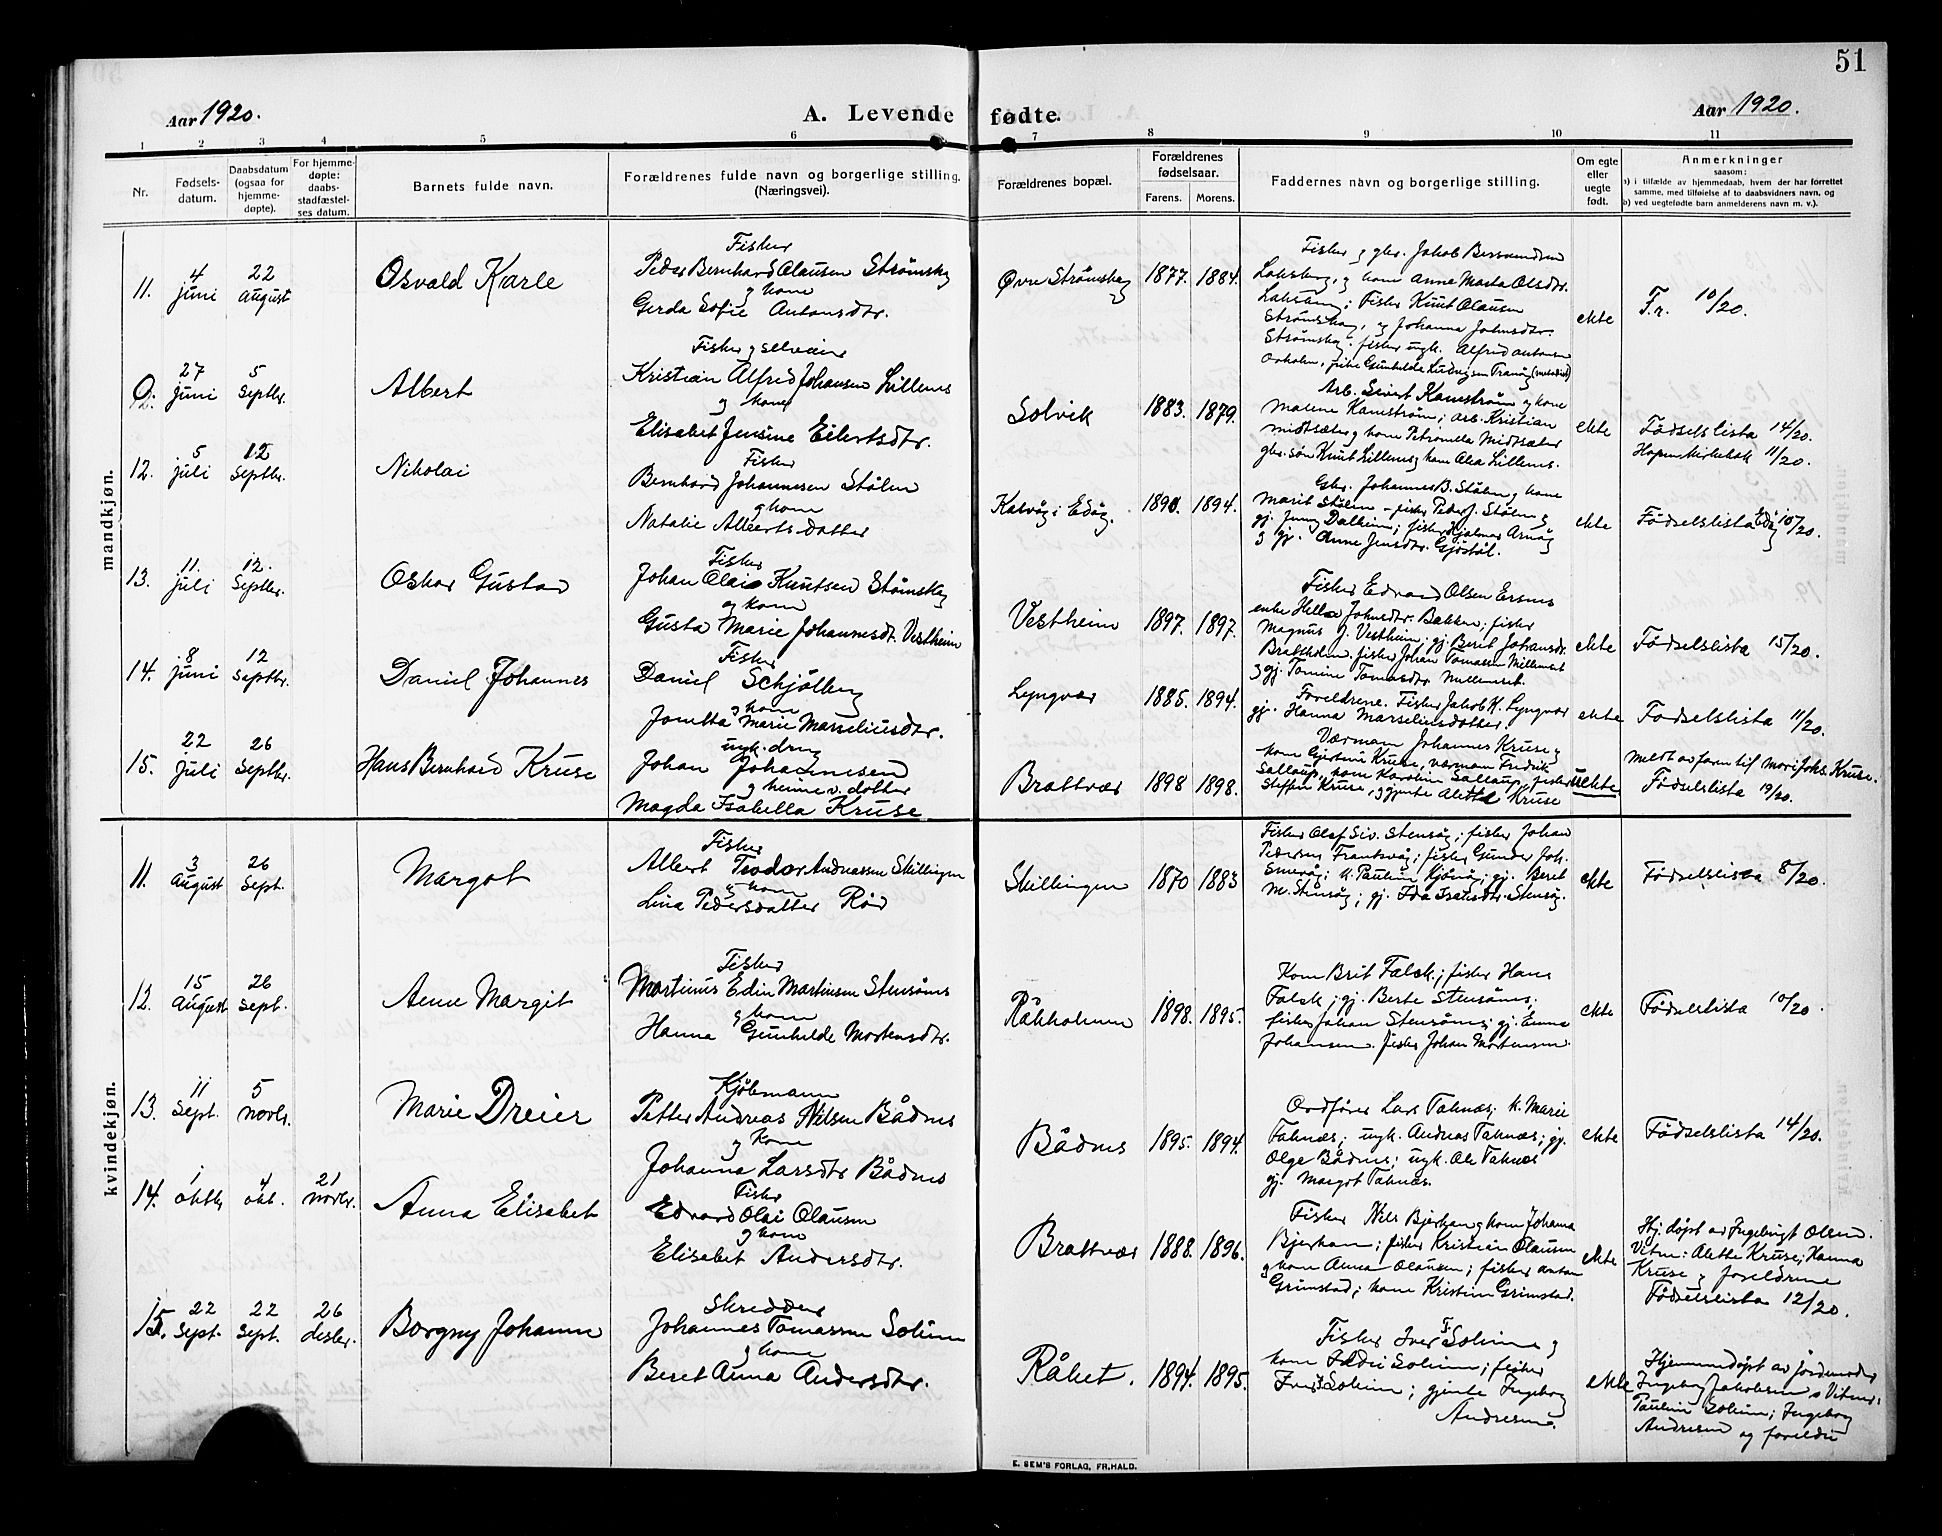 51
Aar 1920.
A. Levende fødte.
Aar 1920.
1 2 3 4 5 6 7 8 9 10 11
Nr.
Fødsels-
datum.
Daabsdatum
(ogsaa for
hjemme-
døpte).
For hjemme-
døpte:
daabs-
stadfæstel-
ses datum.
Barnets fulde navn.
Forældrenes fulde navn og borgerlige stilling.
(Næringsvei).
Forældrenes bopæl.
Forældrenes
fødselsaar.
Farens. Morens.
Faddernes navn og borgerlige stilling.
Om egte
eller
uegte
født.
Anmerkninger
saasom:
a) i tilfælde av hjemmedaab, hvem der har forrettet
samme, med tilføielse af to daabsvidners navn, og
b) ved uegtefødte barn anmelderens navn m. v.).
mandkjøn.
11. 4 juni 22 August Osvald Karle
Fisker
Peder Bernhard Olausen Strømskag
og kone
Gerda Sofie Antonsdtr.
Øvre Strømskag 1877. 1884.
Fisker og gbr. Jakob
og kone Anne Marta Olsdtr.
Fisker Knut Olausen
Strømskag, og Johanna Johnsdtr.
Strømskag. fisker ungk. Alfred Antonsen
pike Gunhilda Ludvigsen Tranøy
ekte
F.r. 10/20.
27 juni 5 Septbr. Albert
Fisker og selveier
Kristian Alfred Johansen Lillenes
og kone
Elisabet Jensine Eilertsdtr.
Solvik 1883. 1879.
Arb. Sivert Kanestrøm og kone
Malene Kanestrøm; arb. Kristian
Midtsæter og kone Petronella Midtsæter
gbr. søn Knut Lillenes og kone Lillenes.
ekte
Fødselslista 14/20.
11/20.
12. 5 juli 12 Septbr. Nikolai
Fisker
Bernhard Johannesen Stølen
og kone
Natalie Albertsdatter
i Edøy. 1890. 1894.
Gbr. Johannes B. Stølen og kone
Marit Stølen - fisker Peder J. Stølen og
gj. Jenny Dalheim; fisker Hjalmar Arnøy
og gj. Anne Jensdtr.
ekte
Fødselslista Edøy 10/20.
13. 11. juli 12. Septbr. Oskar Gustav
Fisker
Johan Olai Knutsen Strømskag
og kone
Gusta Marie Johannesdt. Vestheim
Vestheim 1897. 1897.
Fisker Edvard Olsen Ersnes
enke Johnsdtr. Bakken; fisker
Magnus J. Vestheim; gj. Berit Johansdr.
fisker Johan Tomassen
og gj. Tomine Tomasdtr.
ekte
Fødselslista 15/20.
14. 8 juni 12 Septbr. Daniel Johannes
Fisker
Daniel Schjølberg
og kone
Jonetta Marie Marseliusdtr.
Lyngvær 1885. 1894.
Foreldrene. Fisker Jakob K. Lyngvær
gj. Hanna Marseliusdatter
ekte
Fødselslista 11/20.
15. 22 juli 26 Septbr. Hans Bernhard Kruse
ungk. dreng
Johan Johannesen
og heimev. dotter
Magda Isabella Kruse.
Brattvær 1898 1898.
Værmann Johannes Kruse og
kone Gjertine Kruse, værmann Fredrik
Sallaup, kone Karolin Sallaup, fisker
Steffen Kruse, og gjente Aletta Kruse
uekte
meldt av farn til mori Johs. Kruse.
Fødselslista 19/20.
kvindekjøn.
11. 3 August 26 Sept. Margot
Fisker
Albert Teodor Andreassen Skillingen
og kone
Lina Pedersdatter Rød
Skillingen 1870 1883
Fisker Olaf Siv. Stensøy; fisker Johan
Pedersen Frantsvåg; fisker Gunder Joh.
Smevåg; k. Pauline Kjønøy; gj. Beret
M. Stensøy; gj. Ida Isaksdtr. Stensøy.
ekte
Fødselslista 8/20.
12. 15 August 26 Sept. Anne Margit
Fisker
Martinus Edin Martinsen Stensønes
og kone
Hanna Gunhilde Mortensdtr.
Råkholmen 1898. 1895.
Kone Brit Falck; fisker Hans
Falck; gj. Berte Stensønes;
fisker Johan Stensønes; gj. Emma
Johansen. fisker Johan Mortensen.
ekte
Fødselslista 10/20.
13. 11 Sept. 5 Novbr. Marie Dreier
Kjøbmann
Petter Andreas Nilsen Bådnes
og kone
Johanna Larsdtr Bådnes
Bådnes 1895. 1894.
Ordfører Lars Taknæs; k. Marie
Taknæs; ungk. Andreas Taknæs; gj.
Olga Bådnes; ungk. Ole Taknæs
gj. Margot Taknæs.
ekte
Fødselslista 14/20.
14. 1 oktb. 4 okt. 21 Novbr. Anna Elisabet
Fisker
Edvard Olai Olausen
og kone
Elisabet Andersdtr.
Brattvær 1888. 1896.
Fisker Nils Bjerkan og kone Johanna
Bjerkan; fisker Kristian Olausen
og kone Anna Olausen; fisker Anton
Grimstad; kone Kristine Grimstad.
ekte
Hj. døpt av Ingebrigt Olsen.
Vitne: Alette Kruse; Hanna
Kruse og foreldrene
Fødselslista 12/20.
15. 22 Sept. 22 Sept. 26 desbr. Borgny Johanne
Skredder
Johannes Tomassen Solum
og kone
Beret Anna Andersdtr.
Råket. 1894. 1895.
Fisker Iver T. Solum og
kone Solum; fisker
Solum; gjente Ingeborg
Andresen.
ekte
Hjemmedøpt av jordmoder
Ingeborg Jakobsen. Vitner:
Pauline Solum; Ingeborg
Andresen og foreldre
E. SEM'S FORLAG, FR.HALD.